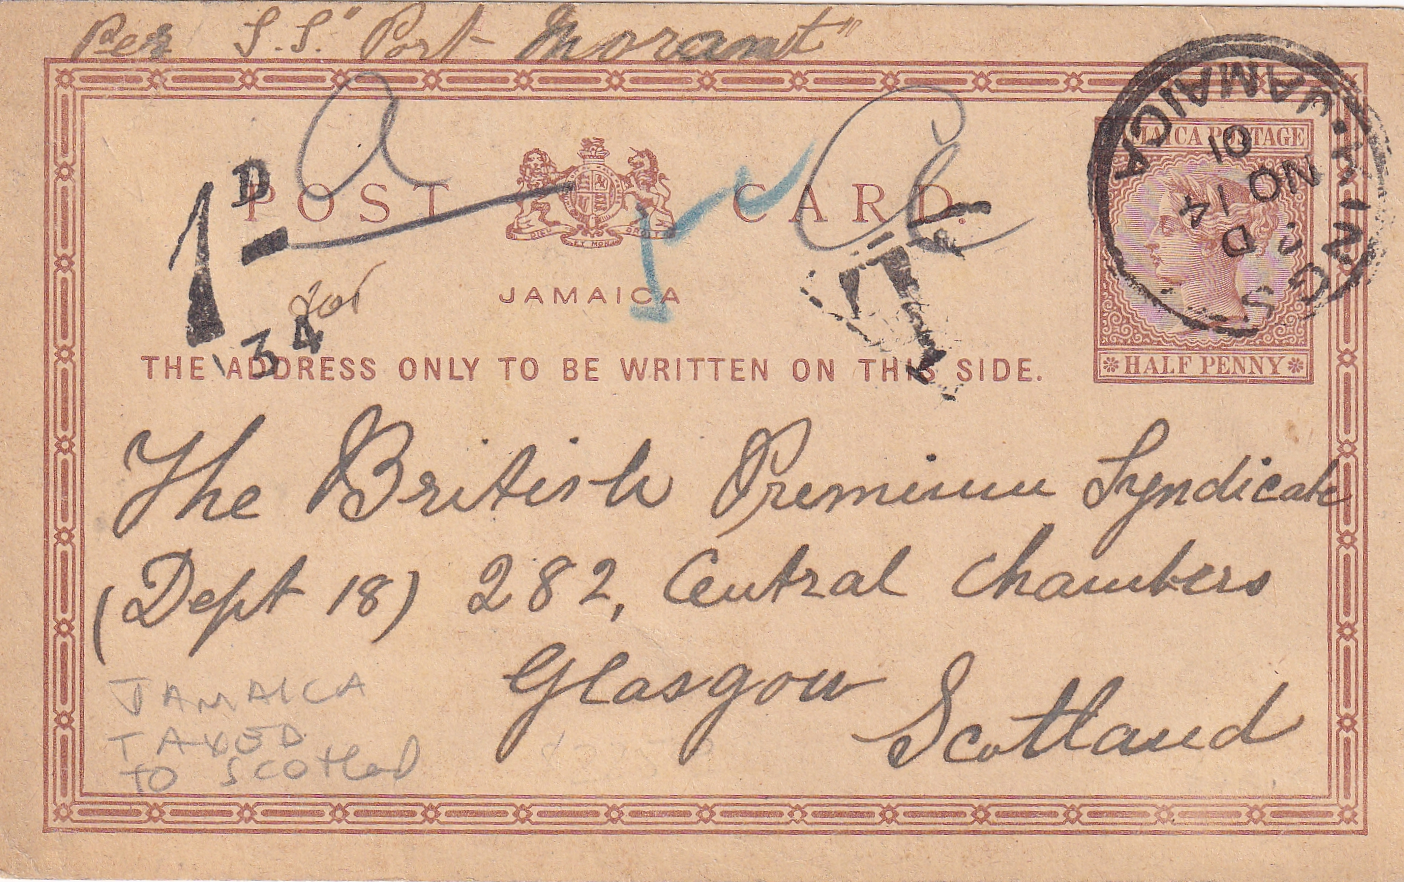 Per S.S. "Port Morant"
POST CARD.
1D
34
T
JAMAICA
THE ADDRESS ONLY TO BE WRITTEN ON THIS SIDE.
KINGSTON. JAMAICA
D
NO 14
01
JAMAICA POSTAGE
HALF PENNY
The British Premium Syndicate
(Dept 18) 282, Central Chambers
Glasgow
Scotland
JAMAICA
TAXED
TO SCOTLAD